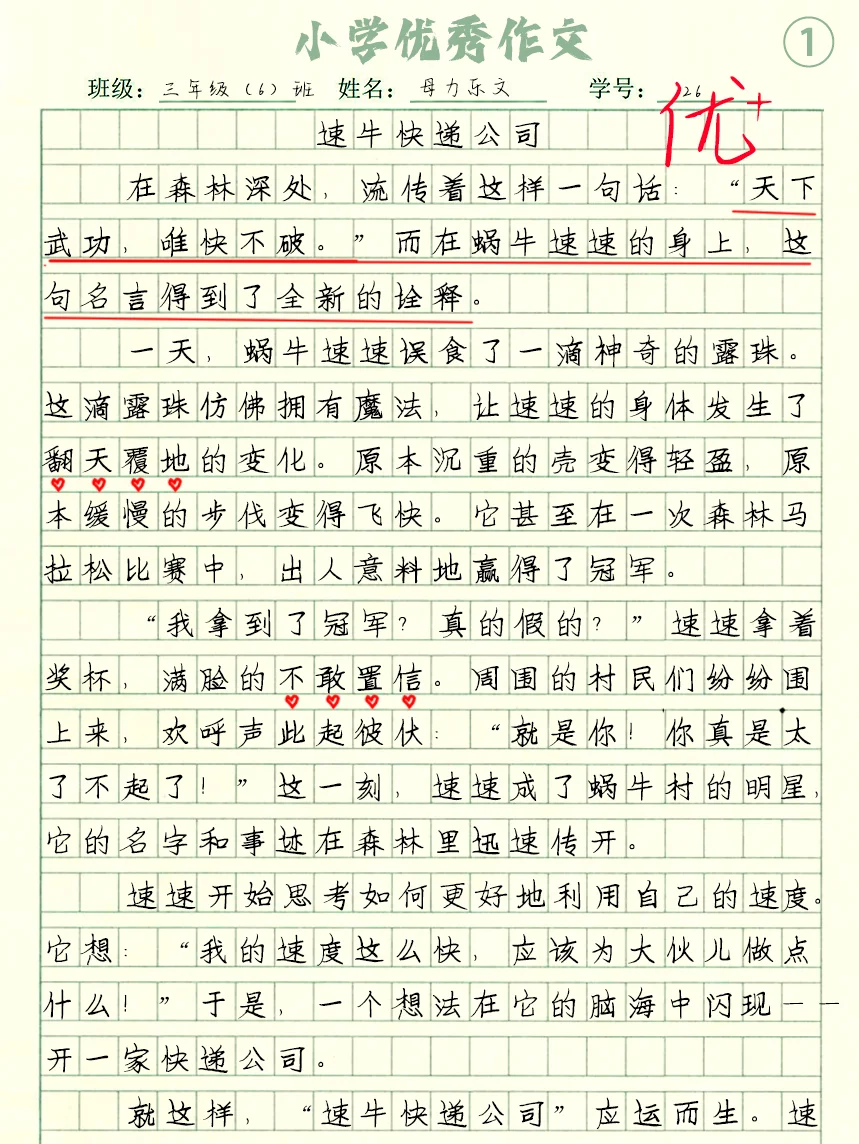 小学优秀作文
1
班级：三年级（6）班 姓名：母力乐文 学号：26
优+
速牛快递公司
在森林深处，流传着这样一句话：“天下
武功，唯快不破。”而在蜗牛速速的身上，这
句名言得到了全新的诠释。
一天，蜗牛速速误食了一滴神奇的露珠。
这滴露珠仿佛拥有魔法，让速速的身体发生了
翻天覆地的变化。原本沉重的壳变得轻盈，原
本缓慢的步伐变得飞快。它甚至在一次森林马
拉松比赛中，出人意料地赢得了冠军。
“我拿到了冠军？真的假的？”速速拿着
奖杯，满脸的不敢置信。周围的村民们纷纷围
上来，欢呼声此起彼伏：“就是你！你真是太
了不起了！”这一刻，速速成了蜗牛村的明星，
它的名字和事迹在森林里迅速传开。
速速开始思考如何更好地利用自己的速度。
它想：“我的速度这么快，应该为大伙儿做点
什么！”于是，一个想法在它的脑海中闪现——
开一家快递公司。
就这样，“速牛快递公司”应运而生。速